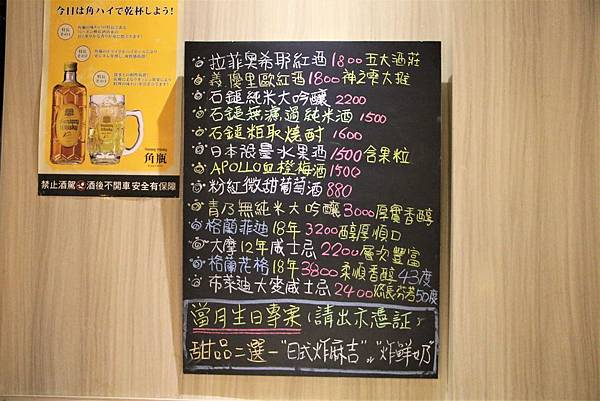 今日は角ハイで乾杯しよう!
角瓶
禁止酒駕 酒後不開車 安全有保障
拉菲奧希耶紅酒 1800 五大酒莊
義 優里歐紅酒 1800 神之雫大推
石鎚純米大吟釀 2200
石鎚無濾過純米酒 1500
石鎚粕取燒酎 1600
日本限量水果酒 1500 含果粒
APOLLO血橙梅酒 1500
粉紅微甜葡萄酒 880
青乃無純米大吟釀 3000 厚實香醇
格蘭菲迪18年 3200 醇厚順口
大摩12年威士忌 2200 層次豐富
格蘭花格18年 3800 柔順香醇 43度
布萊迪大麥威士忌 2400 悠長芬芳 50度
當月生日專案(請出示憑証)
甜品二選一"日式炸麻吉"。"炸鮮奶"